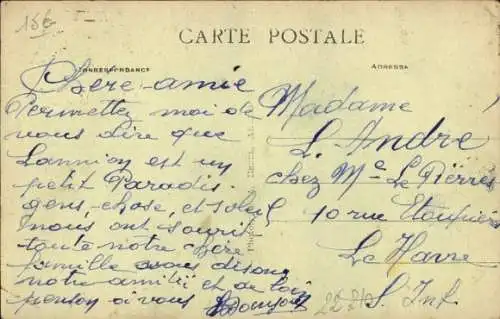 15 €
CARTE POSTALE
CORRESPONDANCE
ADRESSE
Chère amie
Permettez moi de
vous dire que
Lannion est un
petit Paradis.
gens, chose, et soleil
nous ont souri
toute notre chère
famille vous disons
notre amitié et de loin
pensons à vous
Madame
L. André
chez Me Le
10 rue
Le Havre
S. Inf